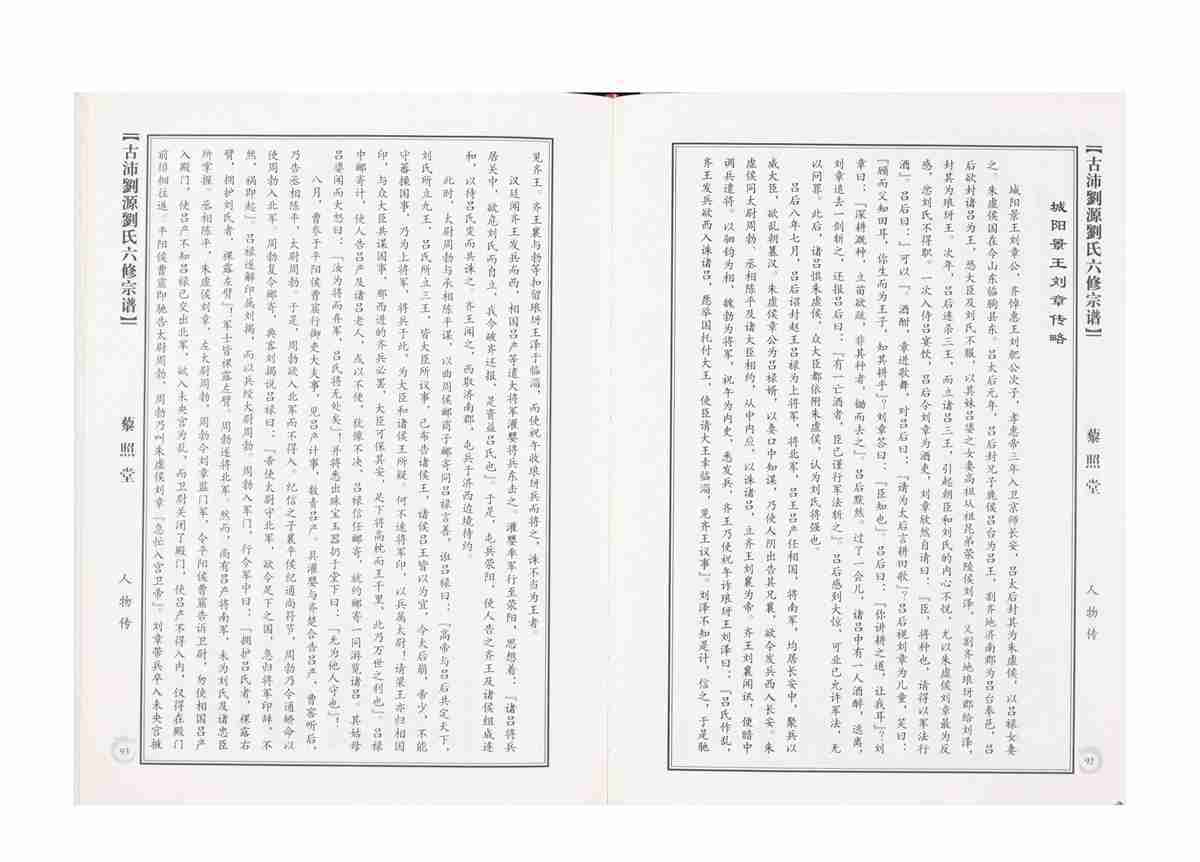 【古沛劉源劉氏六修宗谱】
藜照堂
人物传
92
城阳景王刘章传略
城阳景王刘章公，齐悼惠王刘肥公次子，孝惠帝三年入卫京师长安，吕太后封其为朱虚侯，以吕禄女妻
之。朱虚侯国在今山东临朐县东。吕太后元年，吕后封兄子郦侯吕台为吕王，割齐地济南郡为吕台奉邑，吕
后欲封诸吕为王，恐大臣及刘氏不服，以其妹吕媭之女妻高祖从祖昆弟荣陵侯刘泽，又割齐地琅玡郡给刘泽，
封其为琅玡王。次年，吕后连杀三王，而立诸吕三王，引起朝臣和刘氏的内心不忧，尤以朱虚侯刘章最为反
感，忿刘氏不得职。一次入侍吕宴饮，吕后令刘章为酒吏，刘章欣然自请曰：『臣，将种也，请得以军法行
酒』。吕后曰：『可以』。酒酣，章进歌舞，对吕后曰：『请为太后言耕田歌』？吕后视刘章为儿童，笑曰：
『顾而父知田耳，你生而为王子，知其耕乎』？刘章答曰：『臣知也』。吕后曰：『你讲耕之道，让我耳』？刘
章曰：『深耕溉种，立苗欲疏，非其种者，锄而去之』。吕后默然。过了一会儿，诸吕中有一人酒醉，逃离，
刘章追去一剑斩之，还报吕后曰：『有一亡酒者，臣已谨行军法斩之』。吕后感到大惊，可业已允许军法，无
以问罪。此后，诸吕惧朱虚侯，众大臣都依附朱虚侯，认为刘氏将强也。
吕后八年七月，吕后诏封赵王吕禄为上将军，将北军，吕王吕产任相国，将南军，均居长安中，聚兵以
威大臣，欲乱朝篡汉。朱虚侯章公为吕禄婿，以妻口中知谋，乃使人阴出告其兄襄，欲令发兵西入长安。朱
虚侯同太尉周勃、丞相陈平及诸大臣相约，从中内应，以诛诸吕，立齐王刘襄为帝。齐王刘襄闻讯，便暗中
调兵遣将。以驷钧为相，魏勃为将军，祝午为内史，悉发兵，齐王乃使祝午诈琅玡王刘泽曰：『吕氏作乱，
齐王发兵欲西入诛诸吕，愿举国托付大王，使臣请大王幸临淄，见齐王议事』。刘泽不知是计，信之，于是驰
见齐王。齐王襄与勃等扣留琅玡王泽于临淄，而使祝午收琅玡兵而将之，诛不当为王者。
汉廷闻齐王发兵而西，相国吕产等遣大将军灌婴将兵东击之。灌婴率军行至荥阳，思想着：『诸吕将兵
居关中，欲危刘氏而自立，我今破齐还报，是资益吕氏也』。于是，屯兵荥阳，使人告之齐王及诸侯组成连
和，以待吕氏变而具诛之。齐王闻之，西取济南郡，屯兵于济西边境待约。
此时，太尉周勃与丞相陈平谋，以曲周侯郦商子郦寄问吕禄言善，诳吕禄曰：『高帝与吕后共定天下，
刘氏所立九王，吕氏所立三王，皆大臣所议事，已布告诸侯王，诸侯吕王皆以为宜，今太后崩，帝少，不能
守蕃操国事，乃为上将军，将兵于此，为大臣和诸侯王所疑。何不速将军印，以兵属太尉！请梁王亦归相国
印，与众大臣共谋国事，那西进的齐兵必罢，大臣可保其安，足下将高枕而王千里，此乃万世之利也』。吕禄
中郦寄计，使人告吕产及诸吕老人，或以不便，犹豫不决，吕禄信任郦寄，就约郦寄一同游览诸吕。其姑母
吕媭闻而大怒曰：『汝为将而弃军，吕氏将无处矣』！并将悉出珠宝玉器扔于堂下曰：『无为他人守也』！
八月，曹参子平阳侯曹窟行御史大夫事，见吕产计事，数责吕产。具灌婴与齐楚合告吕产，曹窟听后，
乃告丞相陈平，太尉周勃。于是，周勃欲入北军而不得入。纪信之子襄平侯纪通尚符节，周勃乃令通矫命以
使周勃入北军。周勃复令郦寄，典客刘揭说吕禄曰：『帝使太尉守北军，欲令足下之国，急归将军印辞，不
然，祸即起』。吕禄遂解印属刘揭，而以兵授太尉周勃。周勃入军门，行令军中曰：『拥护吕氏者，裸露右
臂，拥护刘氏者，裸露左臂』！军士皆裸露左臂。周勃遂将北军。然而，尚有吕产将南军，未为刘氏及诸忠臣
所掌握。丞相陈平，朱虚侯刘章，左太尉周勃，周勃令刘章监门军，令平阳侯曹窟告诉卫尉，勿使相国吕产
入殿门，使吕产不知吕禄已交出北军，欲入未央宫为乱，而卫尉关闭了殿门，使吕产不得入内，仅得在殿门
前徘徊往返。平阳侯曹窟即驰告太尉周勃，周勃乃叫朱虚侯刘章『急忙入宫卫帝』。刘章带兵卒入未央宫掖
【古沛劉源劉氏六修宗谱】
藜照堂
人物传
93